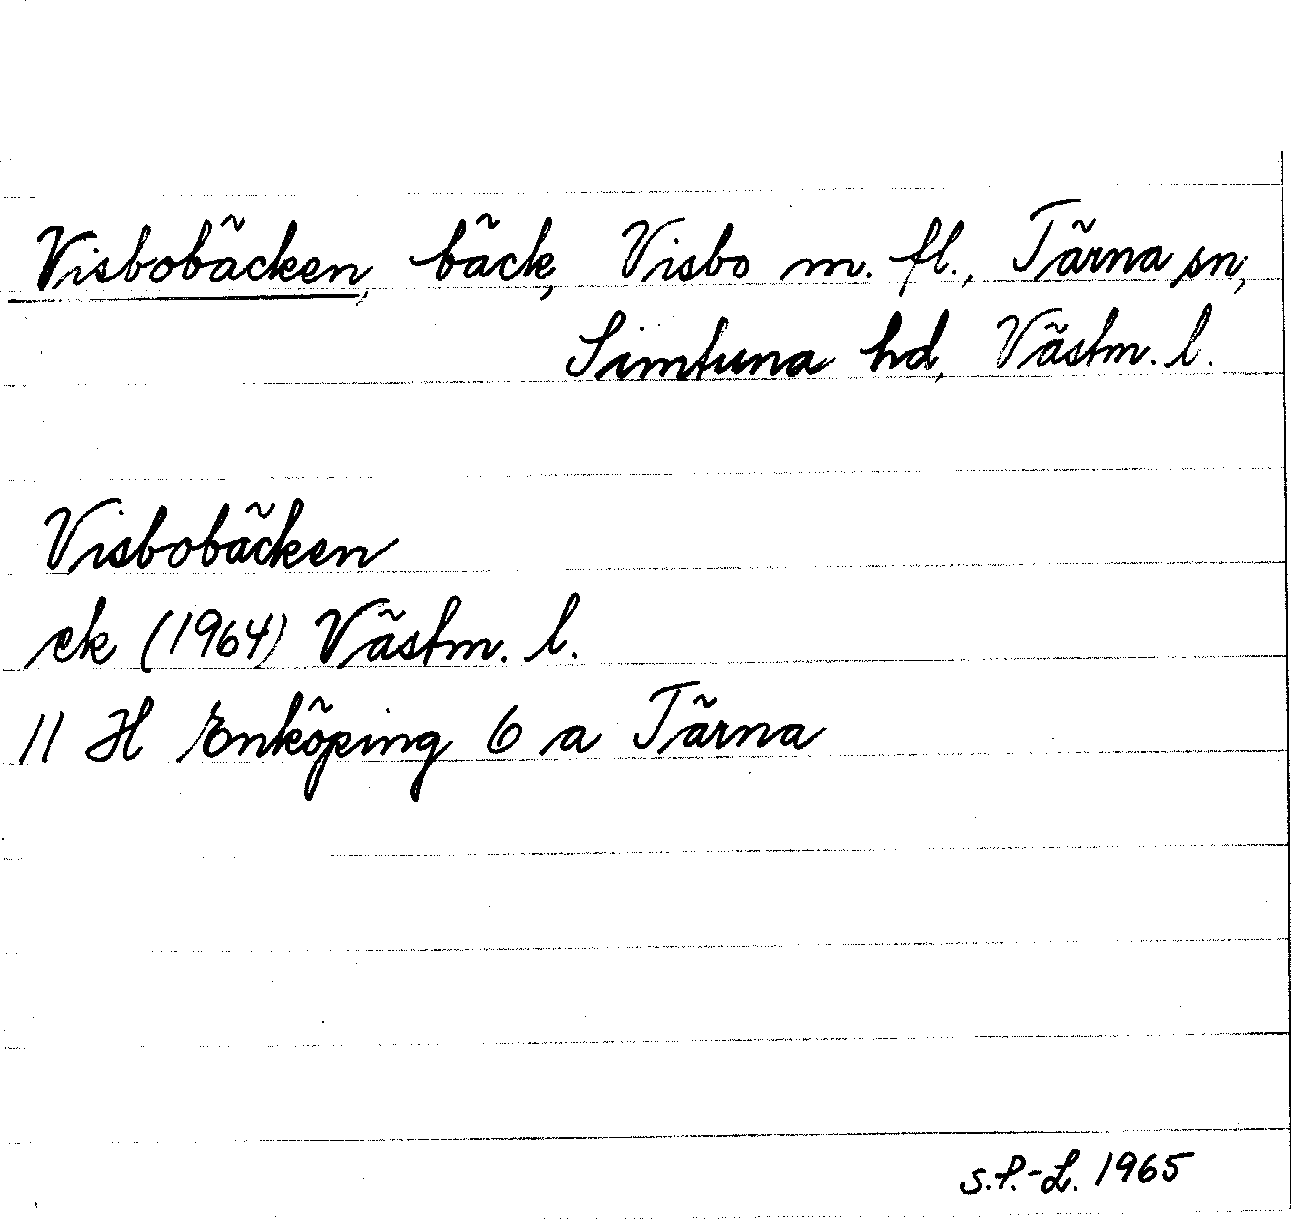 Visbobäcken, bäck, Visbo m. fl., Tärna sn,
Simtuna hd, Västm. l.
Visbobäcken
ek (1964) Västm. l.
11 H Enköping 6 a Tärna
S.P.-L. 1965